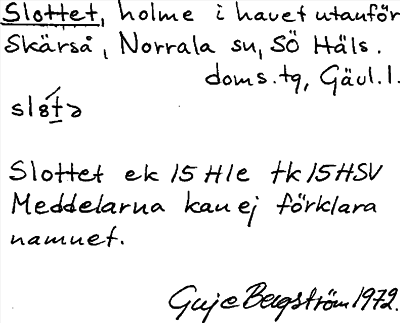 Slottet, holme i havet utanför
Skärså, Norrala sn, SÖ Häls.
doms.tg, Gävl.l.
slòt́ə
Slottet ek 15 H1e tk 15 HSV
Meddelarna kan ej förklara
namnet.
Bergström 1972.